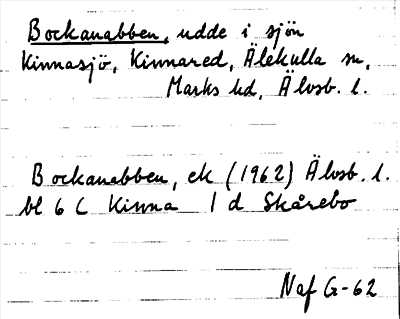 Bockanabben, udde i sjön
Kinnasjö, Kinnared, Älekulla sn,
Marks hd, Älvsb. l.
Bockanabben, ek (1962) Älvsb. l.
bl 6 C Kinna 1 d Skårebo
Naf G-62